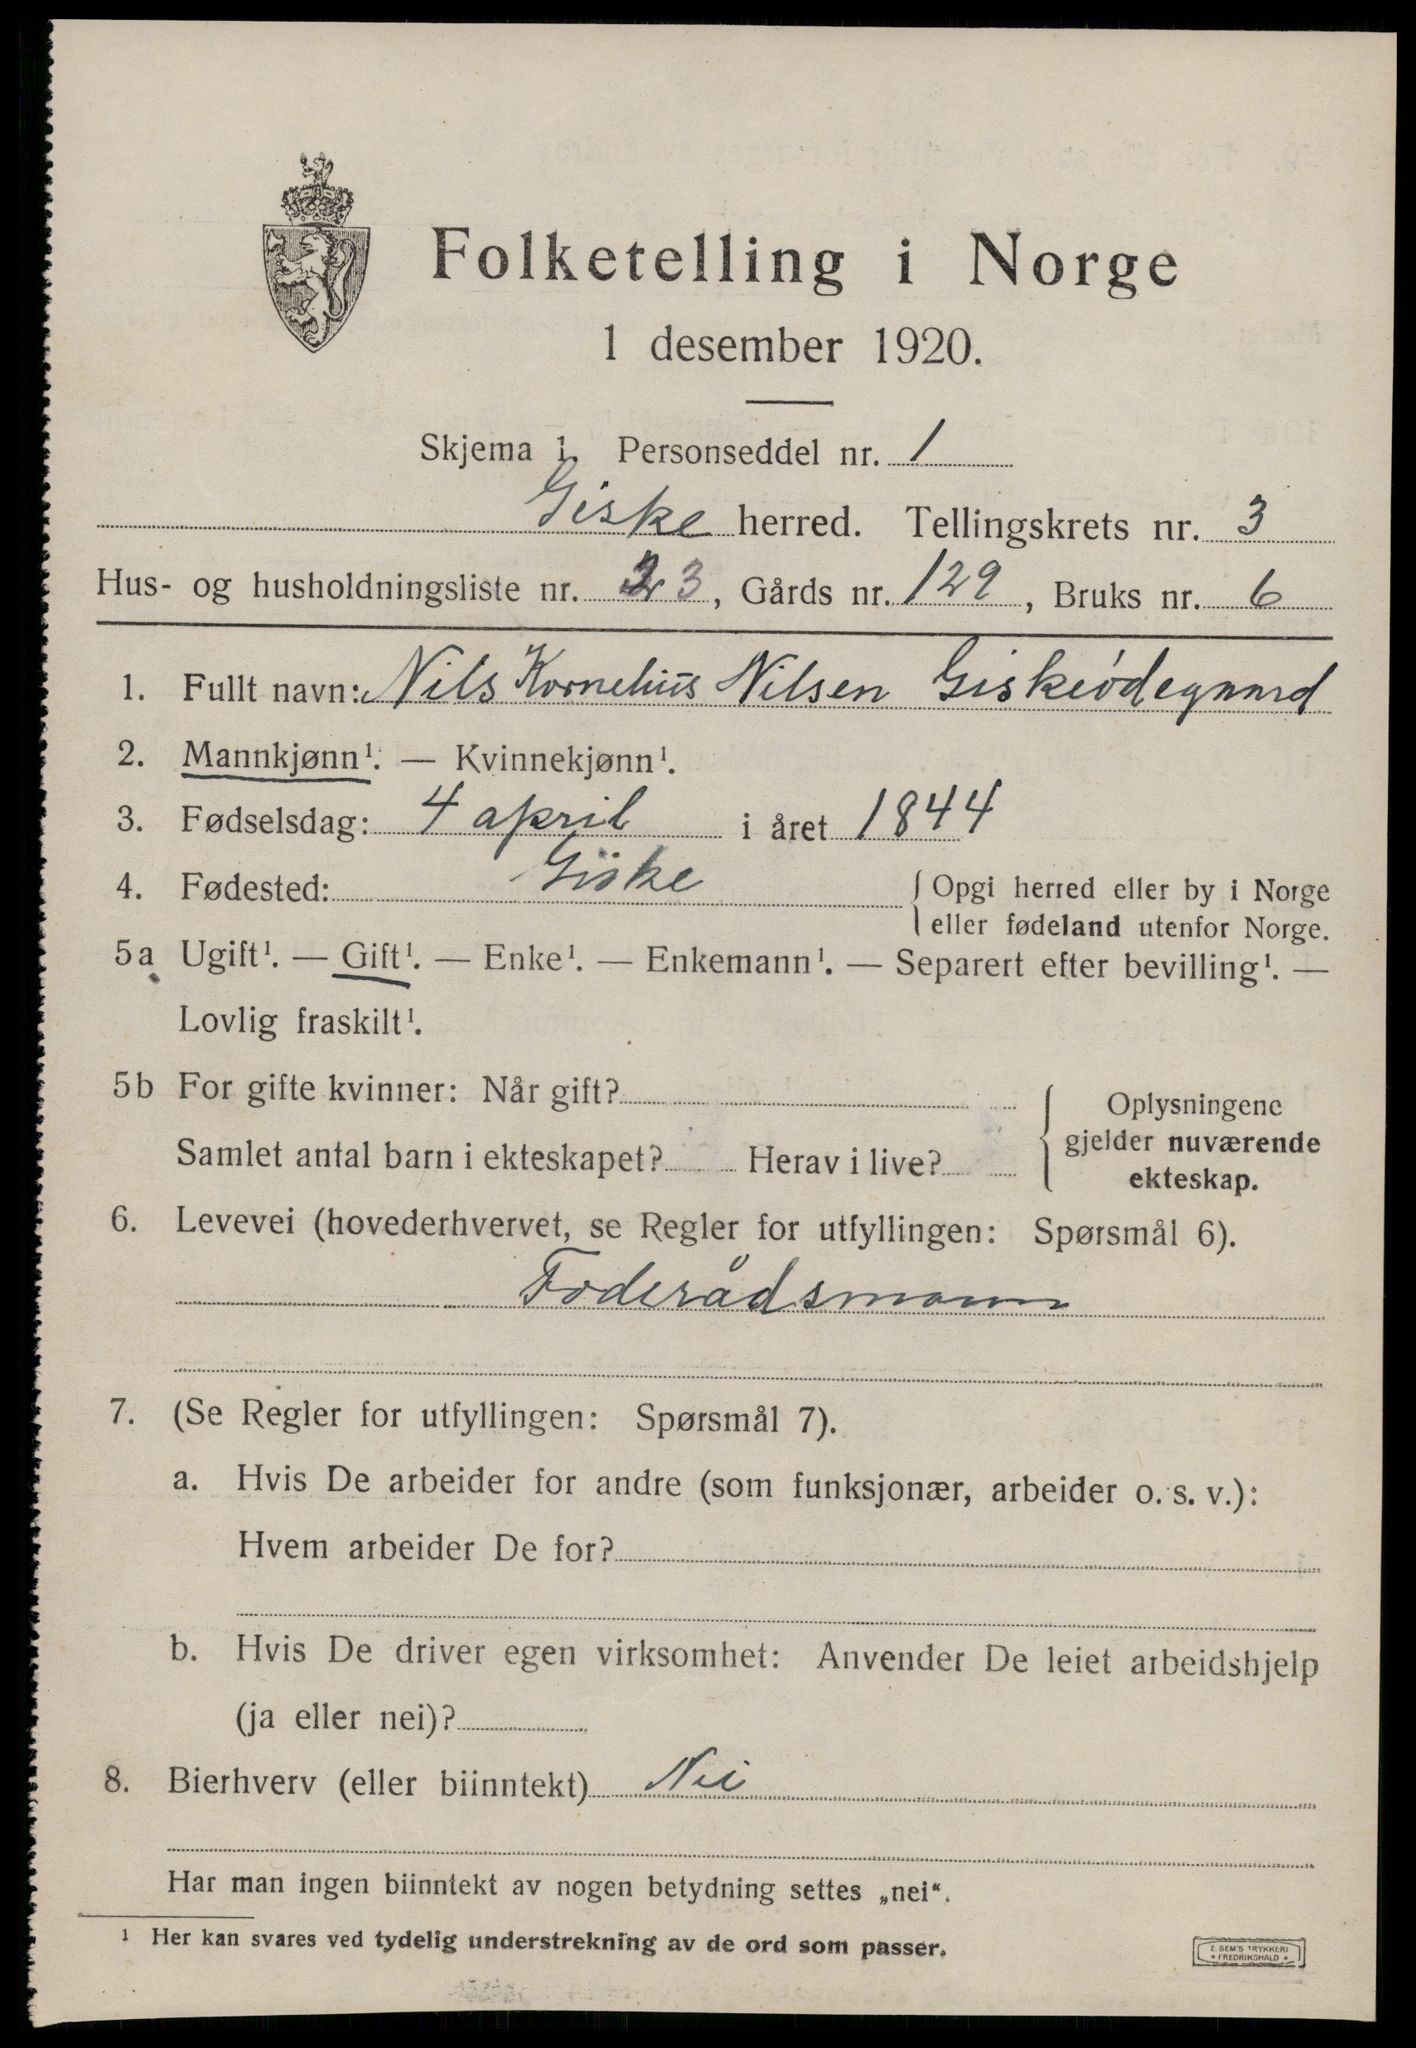 Folketelling i Norge
1 desember 1920.
Skjema 1. Personseddel nr. 1
Giske herred. Tellingskrets nr. 3
Hus- og husholdningsliste nr. 23, Gårds nr. 129, Bruks nr. 6
1. Fullt navn: Nils Kornelius Nilsen Giskeødegaard
2. Mannkjønn¹. — Kvinnekjønn¹.
3. Fødselsdag: 4 april i året 1844
4. Fødested: Giske { Opgi herred eller by i Norge
eller fødeland utenfor Norge.
5a Ugift¹. — Gift¹. — Enke¹. — Enkemann¹. — Separert efter bevilling¹. —
Lovlig fraskilt¹.
5b For gifte kvinner: Når gift? { Oplysningene
gjelder nuværende
Samlet antal barn i ekteskapet? Herav i live?
ekteskap.
6. Levevei (hovederhvervet, se Regler for utfyllingen: Spørsmål 6).
Foderådsmann
7. (Se Regler for utfyllingen: Spørsmål 7).
a. Hvis De arbeider for andre (som funksjonær, arbeider o. s. v.):
Hvem arbeider De for?
b. Hvis De driver egen virksomhet: Anvender De leiet arbeidshjelp
(ja eller nei)?
8. Bierhverv (eller biinntekt) Nei
Har man ingen biinntekt av nogen betydning settes „nei“.
¹ Her kan svares ved tydelig understrekning av de ord som passer.
E. SEM'S TRYKKERI
• FREDRIKSHALD •